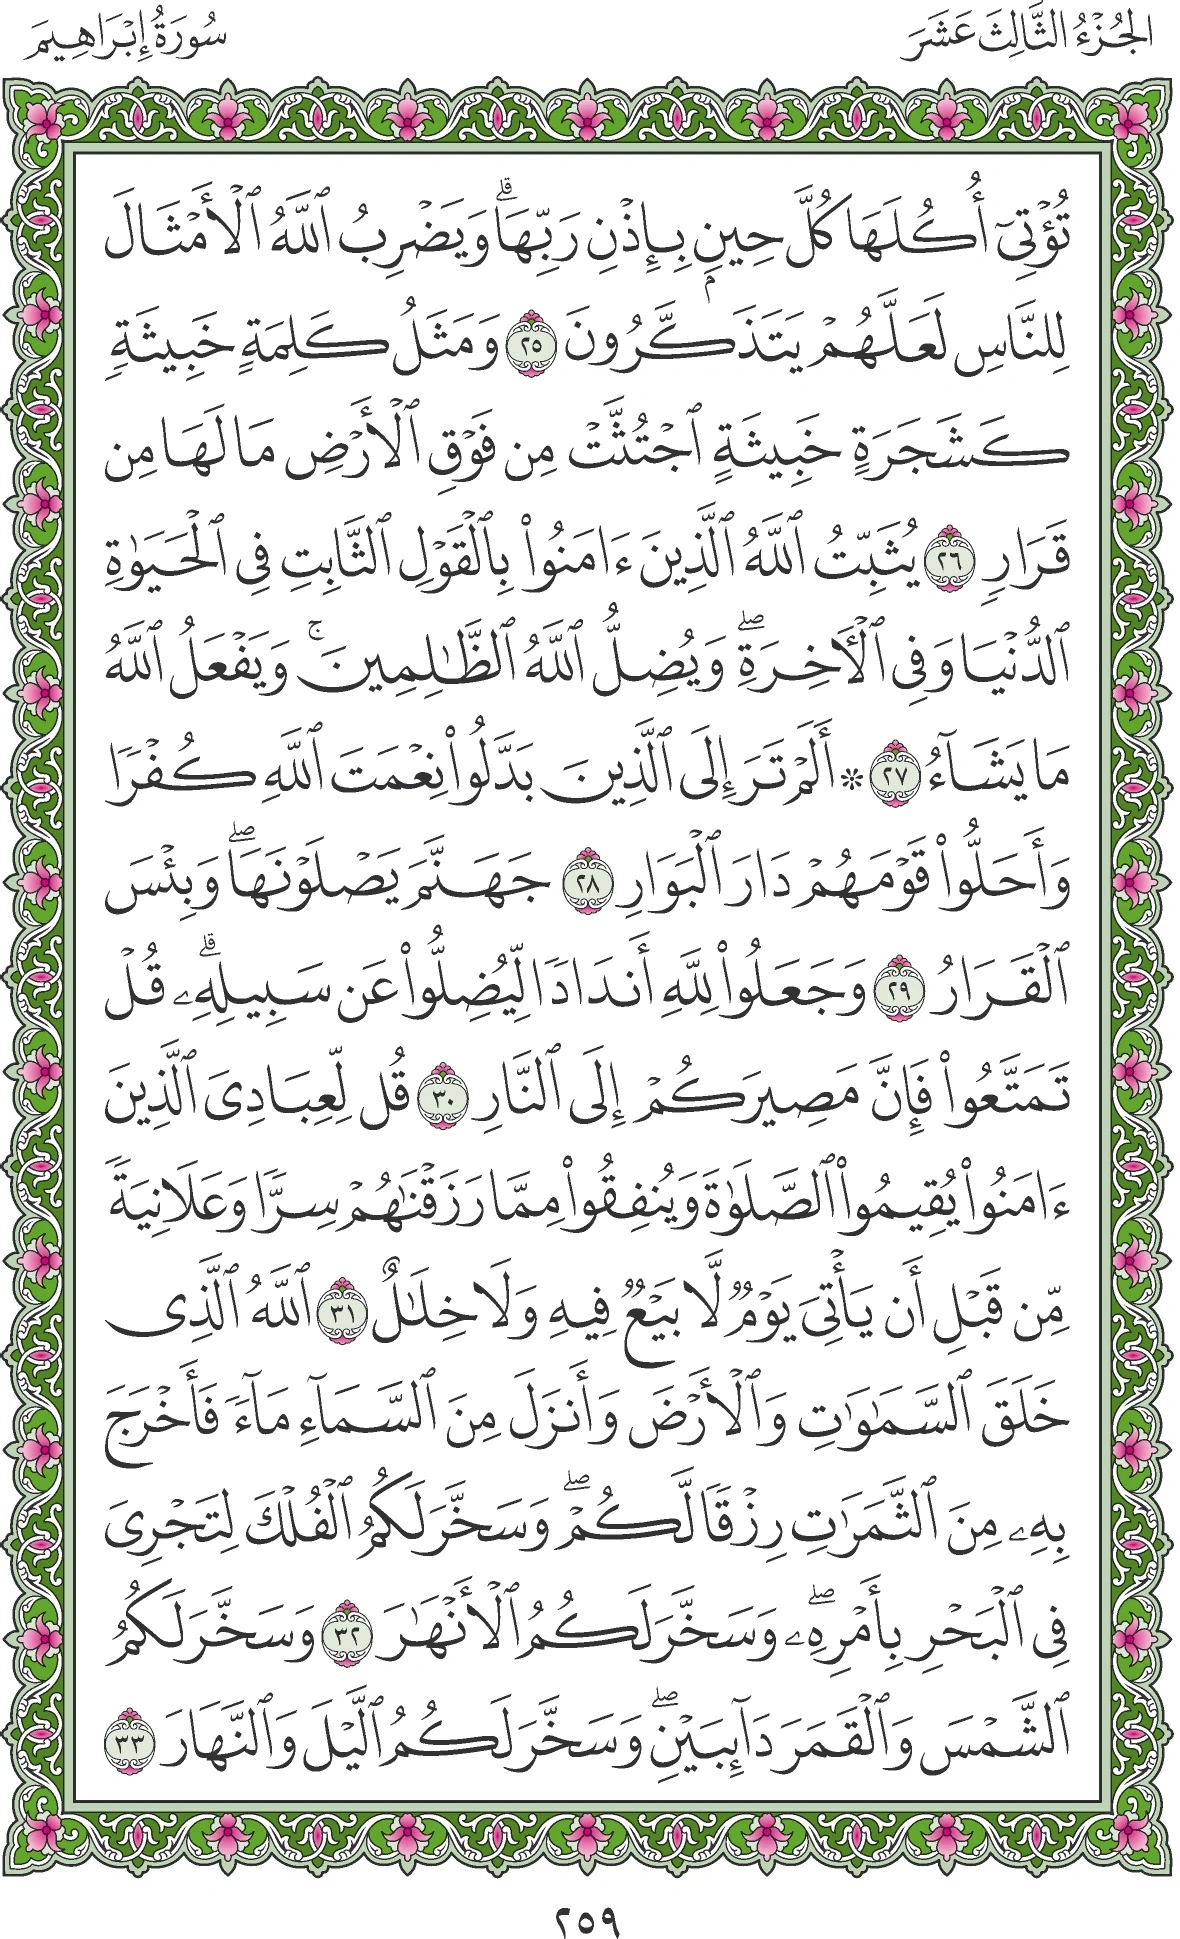 الجُزْءُ الثَّالِثَ عَشَرَ
سُورَةُ إِبْرَاهِيمَ
تُؤۡتِيٓ أُكُلَهَا كُلَّ حِينِۭ بِإِذۡنِ رَبِّهَاۗ وَيَضۡرِبُ ٱللَّهُ ٱلۡأَمۡثَالَ
لِلنَّاسِ لَعَلَّهُمۡ يَتَذَكَّرُونَ ٢٥ وَمَثَلُ كَلِمَةٍ خَبِيثَةٖ
كَشَجَرَةٍ خَبِيثَةٍ ٱجۡتُثَّتۡ مِن فَوۡقِ ٱلۡأَرۡضِ مَا لَهَا مِن
قَرَارٖ ٢٦ يُثَبِّتُ ٱللَّهُ ٱلَّذِينَ ءَامَنُواْ بِٱلۡقَوۡلِ ٱلثَّابِتِ فِي ٱلۡحَيَوٰةِ
ٱلدُّنۡيَا وَفِي ٱلۡأٓخِرَةِۖ وَيُضِلُّ ٱللَّهُ ٱلظَّٰلِمِينَۚ وَيَفۡعَلُ ٱللَّهُ
مَا يَشَآءُ ٢٧ ۞ أَلَمۡ تَرَ إِلَى ٱلَّذِينَ بَدَّلُواْ نِعۡمَتَ ٱللَّهِ كُفۡرٗا
وَأَحَلُّواْ قَوۡمَهُمۡ دَارَ ٱلۡبَوَارِ ٢٨ جَهَنَّمَ يَصۡلَوۡنَهَاۖ وَبِئۡسَ
ٱلۡقَرَارُ ٢٩ وَجَعَلُواْ لِلَّهِ أَندَادٗا لِّيُضِلُّواْ عَن سَبِيلِهِۦۗ قُلۡ
تَمَتَّعُواْ فَإِنَّ مَصِيرَكُمۡ إِلَى ٱلنَّارِ ٣٠ قُل لِّعِبَادِيَ ٱلَّذِينَ
ءَامَنُواْ يُقِيمُواْ ٱلصَّلَوٰةَ وَيُنفِقُواْ مِمَّا رَزَقۡنَٰهُمۡ سِرّٗا وَعَلَانِيَةٗ
مِّن قَبۡلِ أَن يَأۡتِيَ يَوۡمٞ لَّا بَيۡعٞ فِيهِ وَلَا خِلَٰلٌ ٣١ ٱللَّهُ ٱلَّذِي
خَلَقَ ٱلسَّمَٰوَٰتِ وَٱلۡأَرۡضَ وَأَنزَلَ مِنَ ٱلسَّمَآءِ مَآءٗ فَأَخۡرَجَ
بِهِۦ مِنَ ٱلثَّمَرَٰتِ رِزۡقٗا لَّكُمۡۖ وَسَخَّرَ لَكُمُ ٱلۡفُلۡكَ لِتَجۡرِيَ
فِي ٱلۡبَحۡرِ بِأَمۡرِهِۦۖ وَسَخَّرَ لَكُمُ ٱلۡأَنۡهَٰرَ ٣٢ وَسَخَّرَ لَكُمُ
ٱلشَّمۡسَ وَٱلۡقَمَرَ دَآئِبَيۡنِۖ وَسَخَّرَ لَكُمُ ٱلَّيۡلَ وَٱلنَّهَارَ ٣٣
٢٥٩